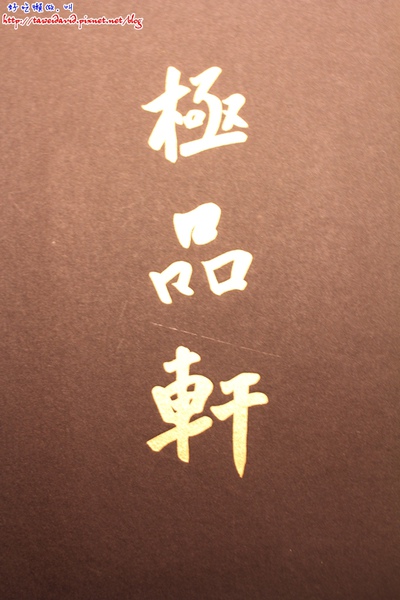 好吃懶做.叫
http://taweidavid.pixnet.net/blog
極品軒